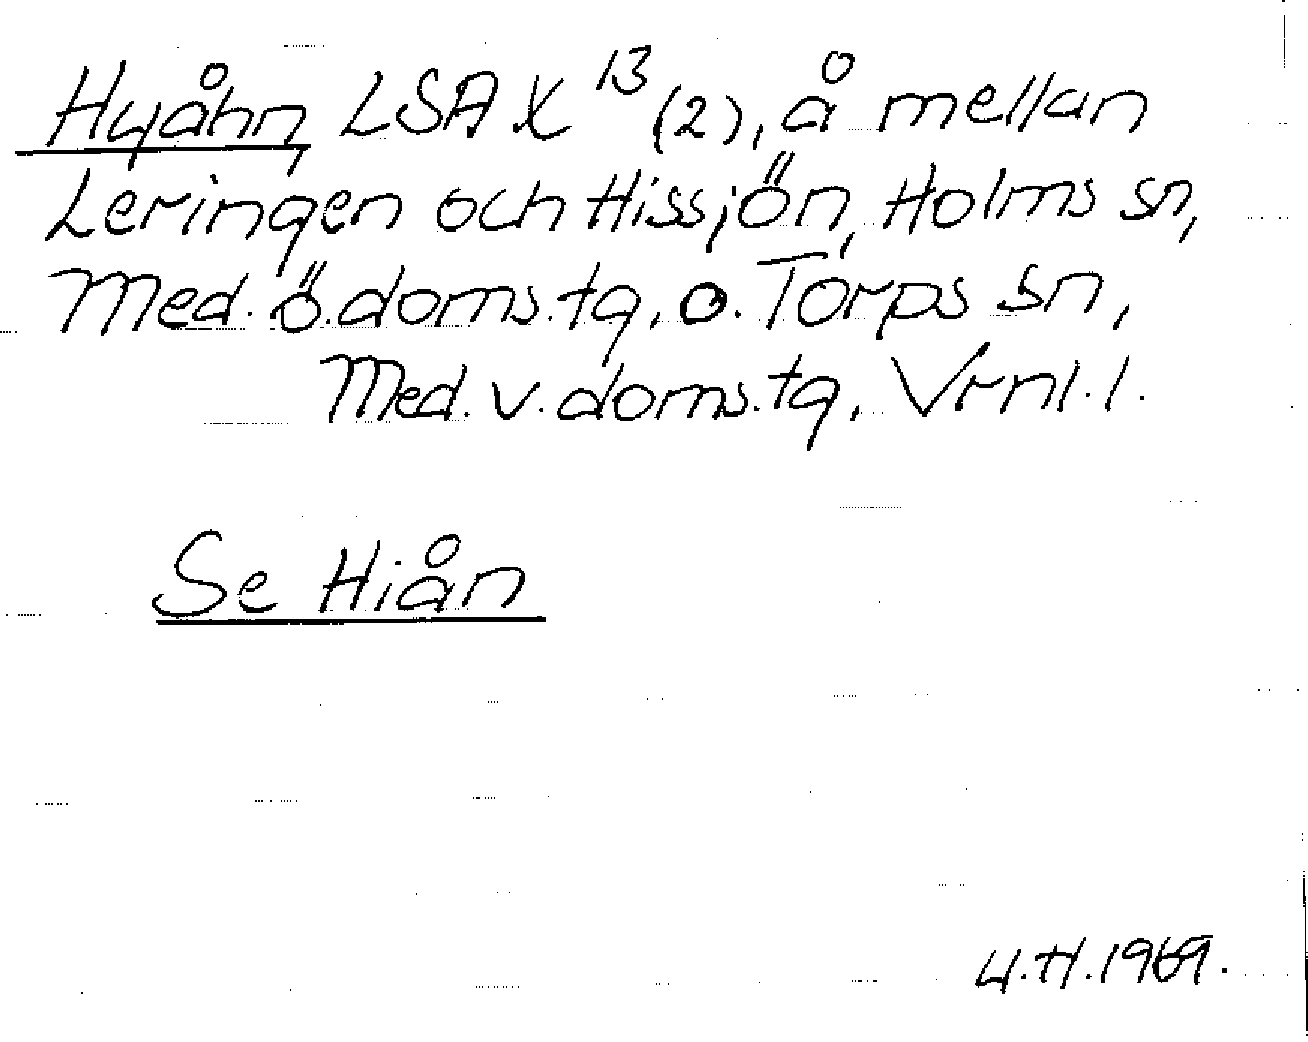 Hyåhn, LSA X 13 (2), å mellan
Leringen och Hissjön, Holms sn,
Med. ö. doms. tg, o. Torps sn,
Med. v. doms. tg, Vrnl. l.
Se Hiån
U.H. 1969.